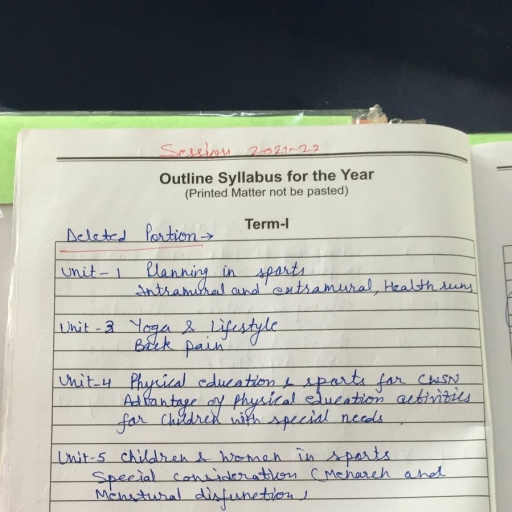 Session 2021-22
Outline Syllabus for the Year
(Printed Matter not be pasted)
Term-I
Deleted Portion →
Unit - 1 Planning in sports
Intramural and extramural, Health runs
Unit - 3 Yoga & Lifestyle
Back pain
Unit-4 Physical education & sports for CWSN
Advantage of Physical education activities
for Children with special needs.
Unit-5 Children & Women in sports
Special consideration (Menarch and
Menstural disfunction)